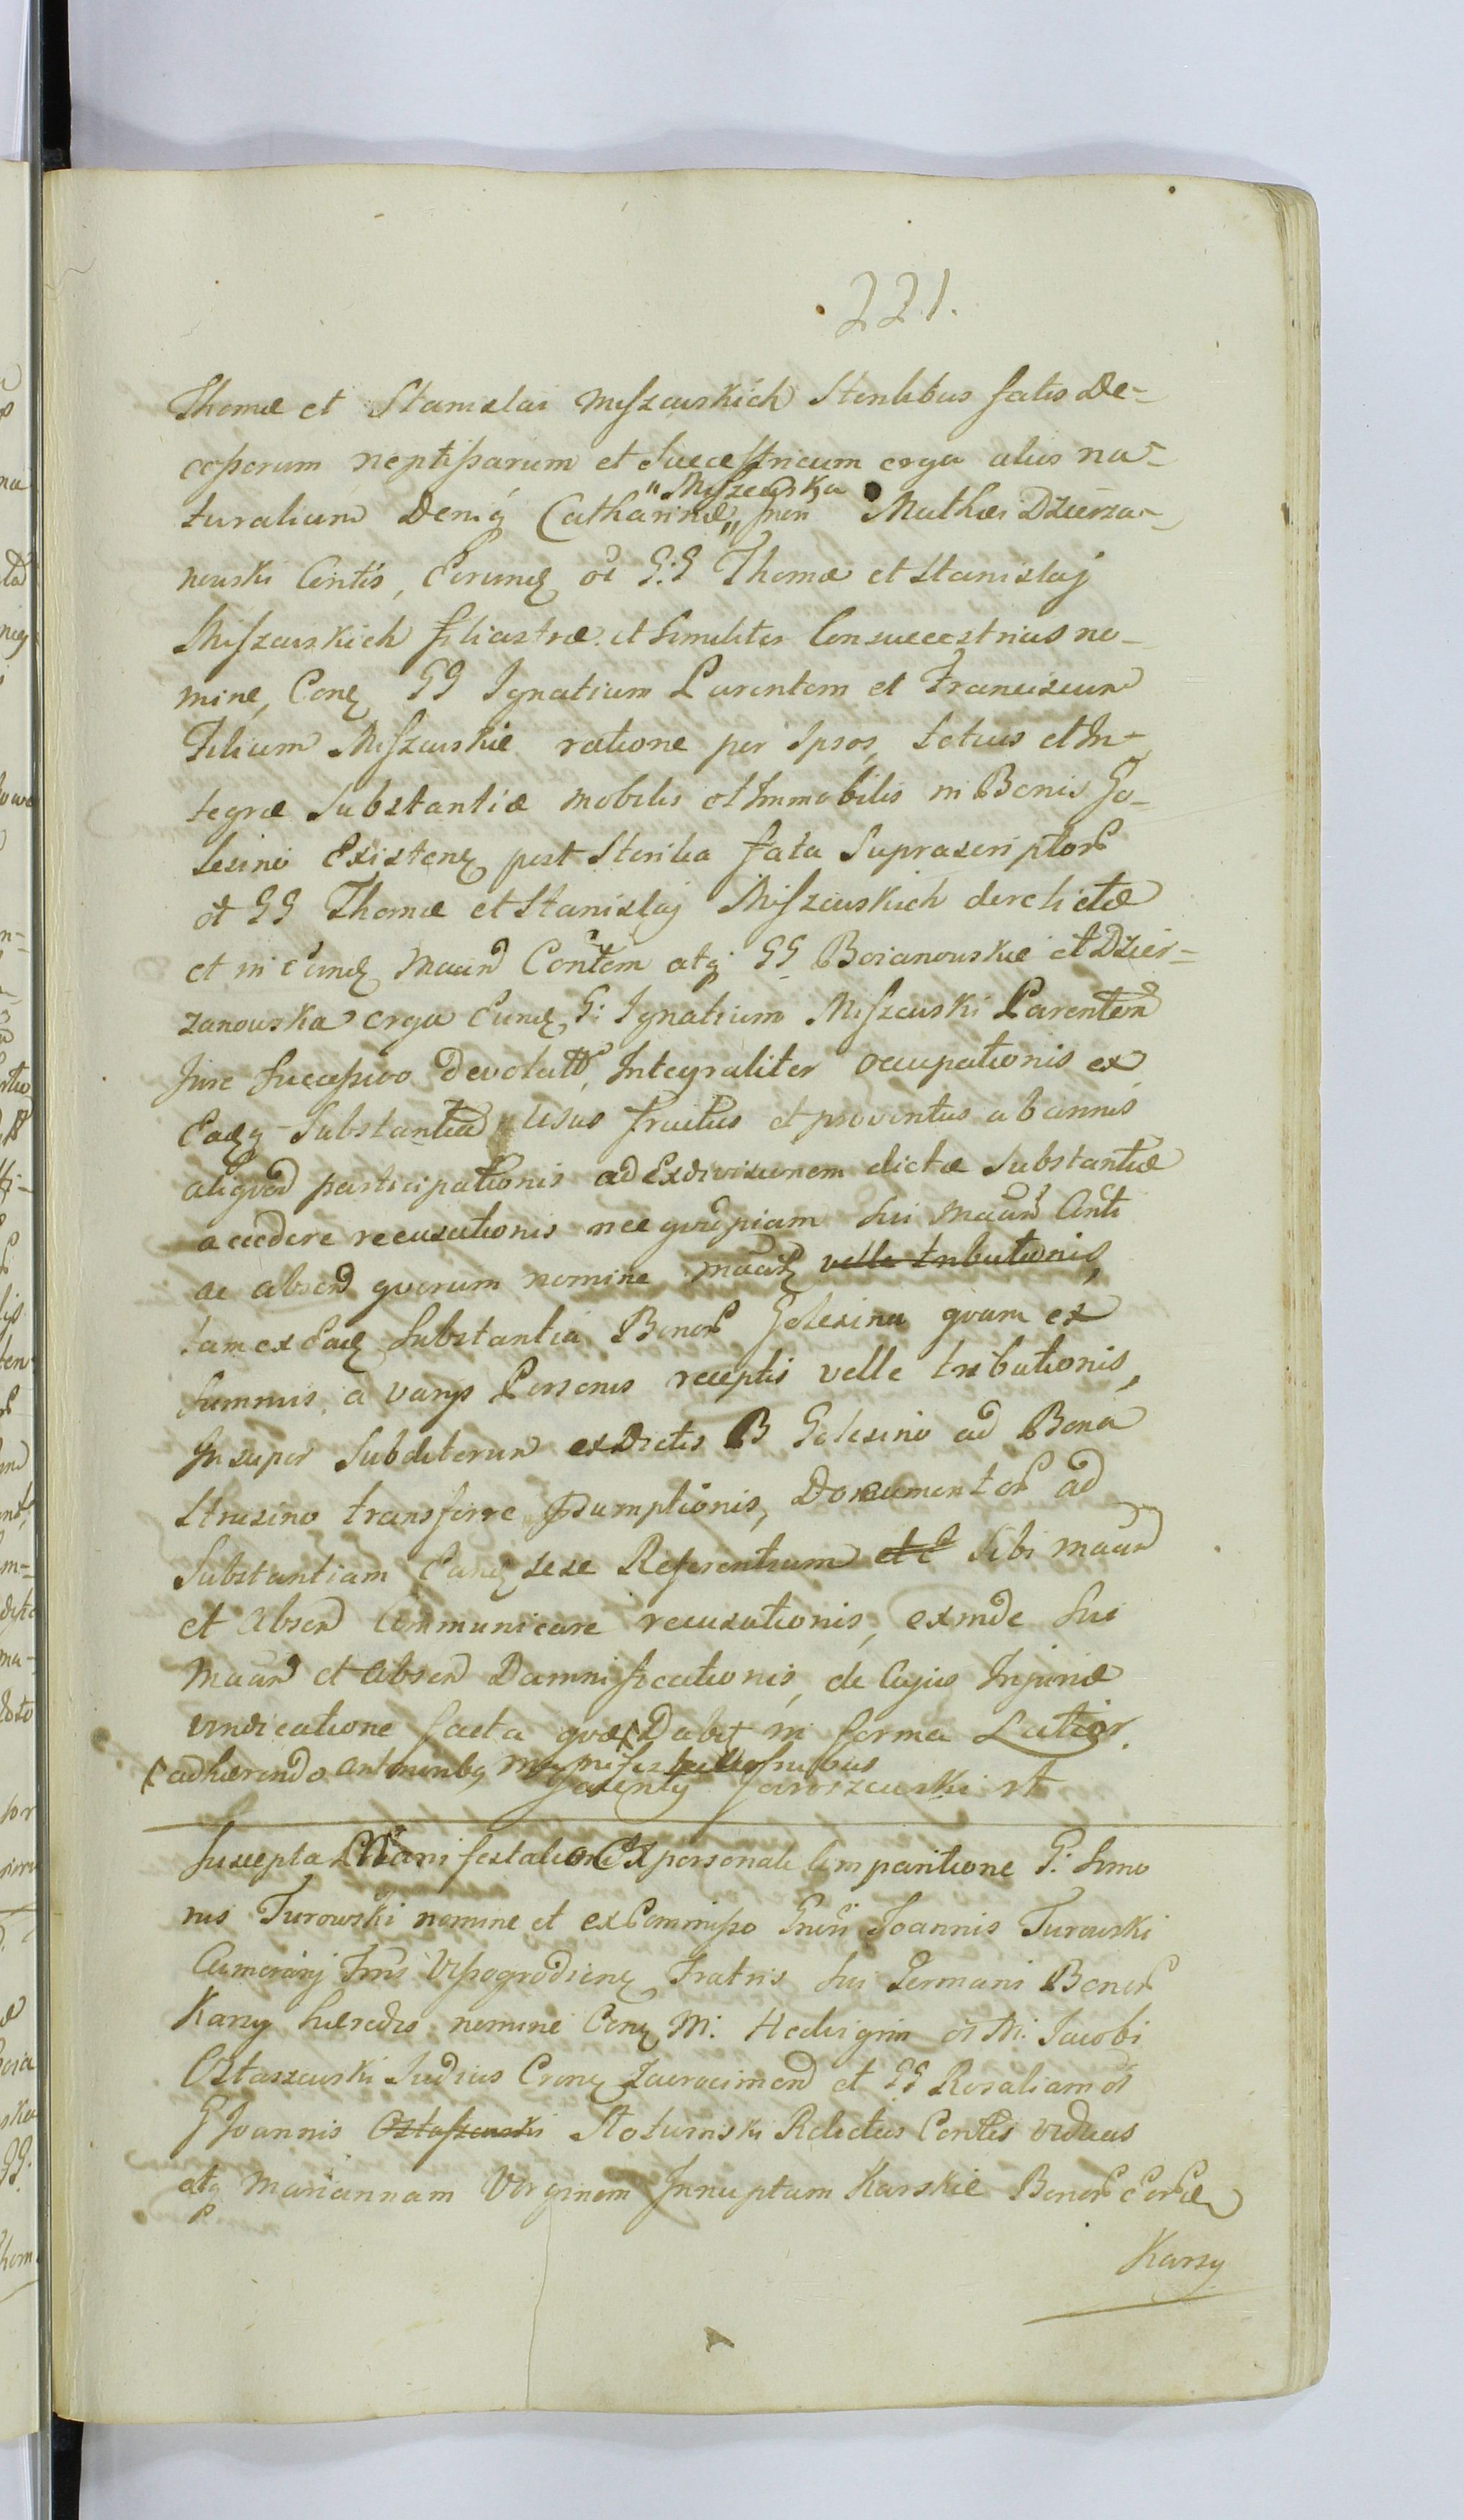 221.
Thomæ et Stanislai Miszewskich Sterilibus fatis De-
cessorum neptissarum et Successtricum erga alios na-
turalium Deniq Catharinæ „Miszewska„ Mathæi Dzierza-
nowski Contis, Eorundq oĩ G:G Thomæ et Stanislaj
Miszewskich filiastræ et similiter Consuccestricis no-
mine, Conq GG Ignatium Parentem et Franciscum
Filium Miszewskie ratione per Ipsos, totius et In-
tegræ Substantiæ mobilis et Immobilis in Bonis Go-
lesino Existenq post Sterilia fata Suprascriptor
oĩ GG Thomæ et Stanislaj Miszewskich derelictæ
et in Eundq Maand Contem atq GG Boianowskie et Dzier-
zanowska erga Eundq G: Ignatium Miszewski Parentem
Jure Successivo Devolutæ, Integraliter occupationis ex
Eadq Substantia usus fructus et proventus ab annis
aliqvod participationis ad Exdivisionem dictæ Substantiæ
accedere recusationis nec qvidpiam sui Maand Anti
ac absend qvorum nomine maatq velle tributionis,
tam ex Eadq Substantia Bonor Golesino qvam ex
summis, a varys Personis receptis velle tributionis,
Insuper Subditorum ex Dictis B Golesino ad Bona
Strusino transferre Præsumptionis, Documentor ad
Substantiam Eandq sese Referentium etc Sibi maand
et Absend Communicare recusationis, exinde sui
Maand et Absend Damnificationis, de Cujus Injuriæ
vindicatione facta qvæ Dabit in forma Latior.
(adhærendo antmentibq manifestationibus
Jazenty Jaroszewski st
Suscepta Manifestatione Ex personali Comparitione G: Simo
nis Turowski nomine et ex Commisso Gnĩsi Joannis Turowski
Camerarij Trrĩs Wyssogrodienq Fratris sui Germani Bonor
Karsy hæredis nomine Conq M: Hedvigim oĩ M: Jacobi
Ostaszewski Judicis Crenq Zacrocimend et GG Rosaliam oĩ
G Joannis Ostaszewski Stoturnski Relictus Contis viduas
atq Mariannam Virginem Innuptam Karskie Bonor Eor
Karsy